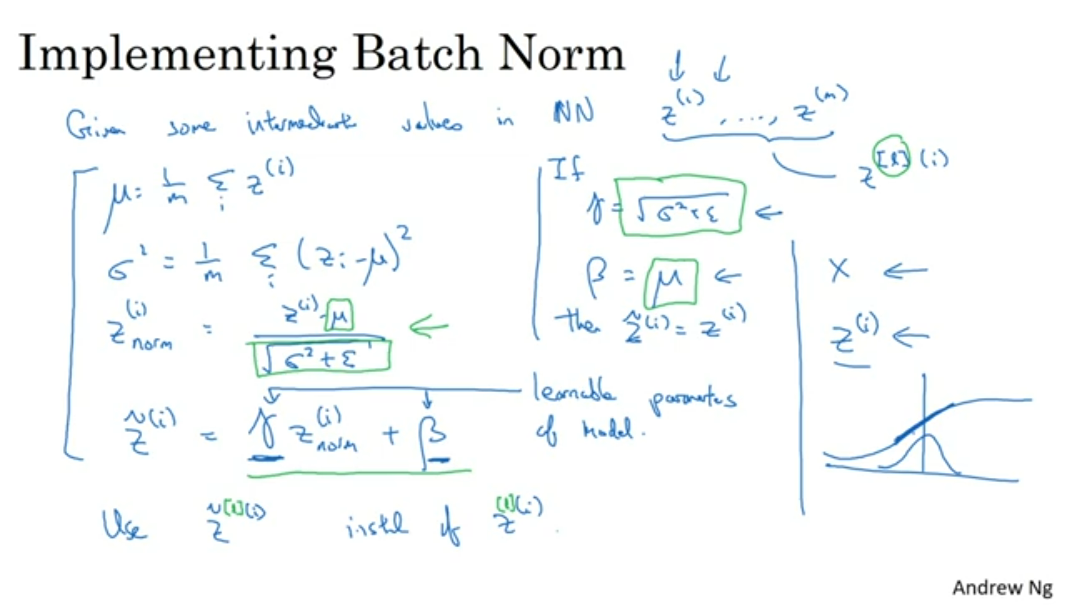 Implementing Batch Norm
Given some intermediate values in NN z^(1), ..., z^(m)
z^[l](i)
μ = 1/m Σ_i z^(i)
σ² = 1/m Σ_i (z_i - μ)²
z_norm^(i) = (z^(i) - μ) / √(σ² + ε)
z̃^(i) = γ z_norm^(i) + β
learnable parameters
of model.
If
γ = √(σ² + ε)
β = μ
then z̃^(i) = z^(i)
X
z^(i)
Use z̃^[l](i) instead of z^[l](i).
Andrew Ng